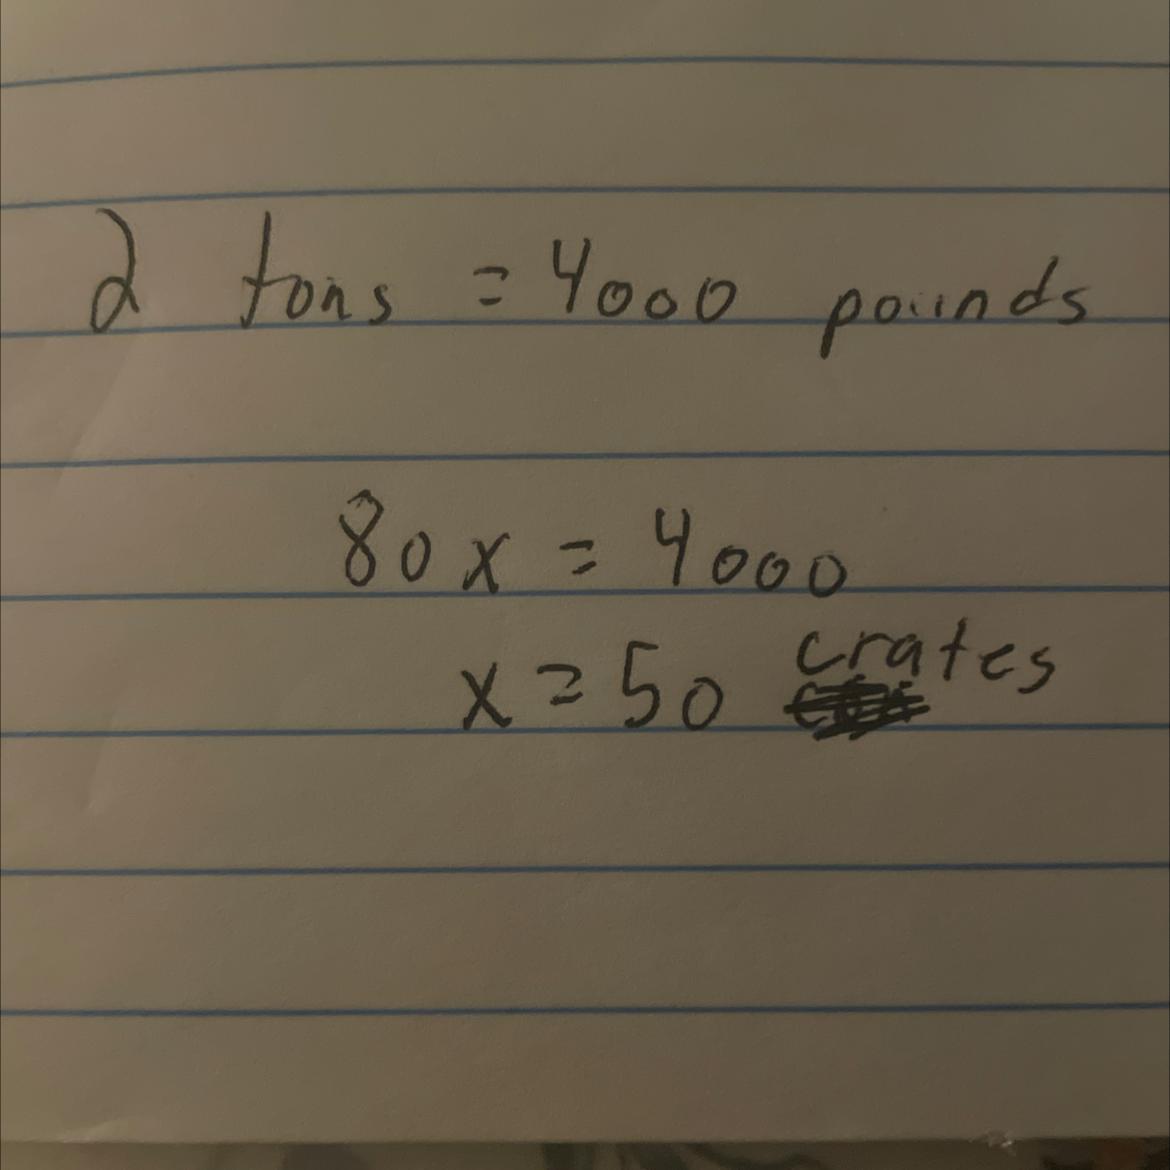 2 tons = 4000 pounds
80x = 4000
x = 50 crates